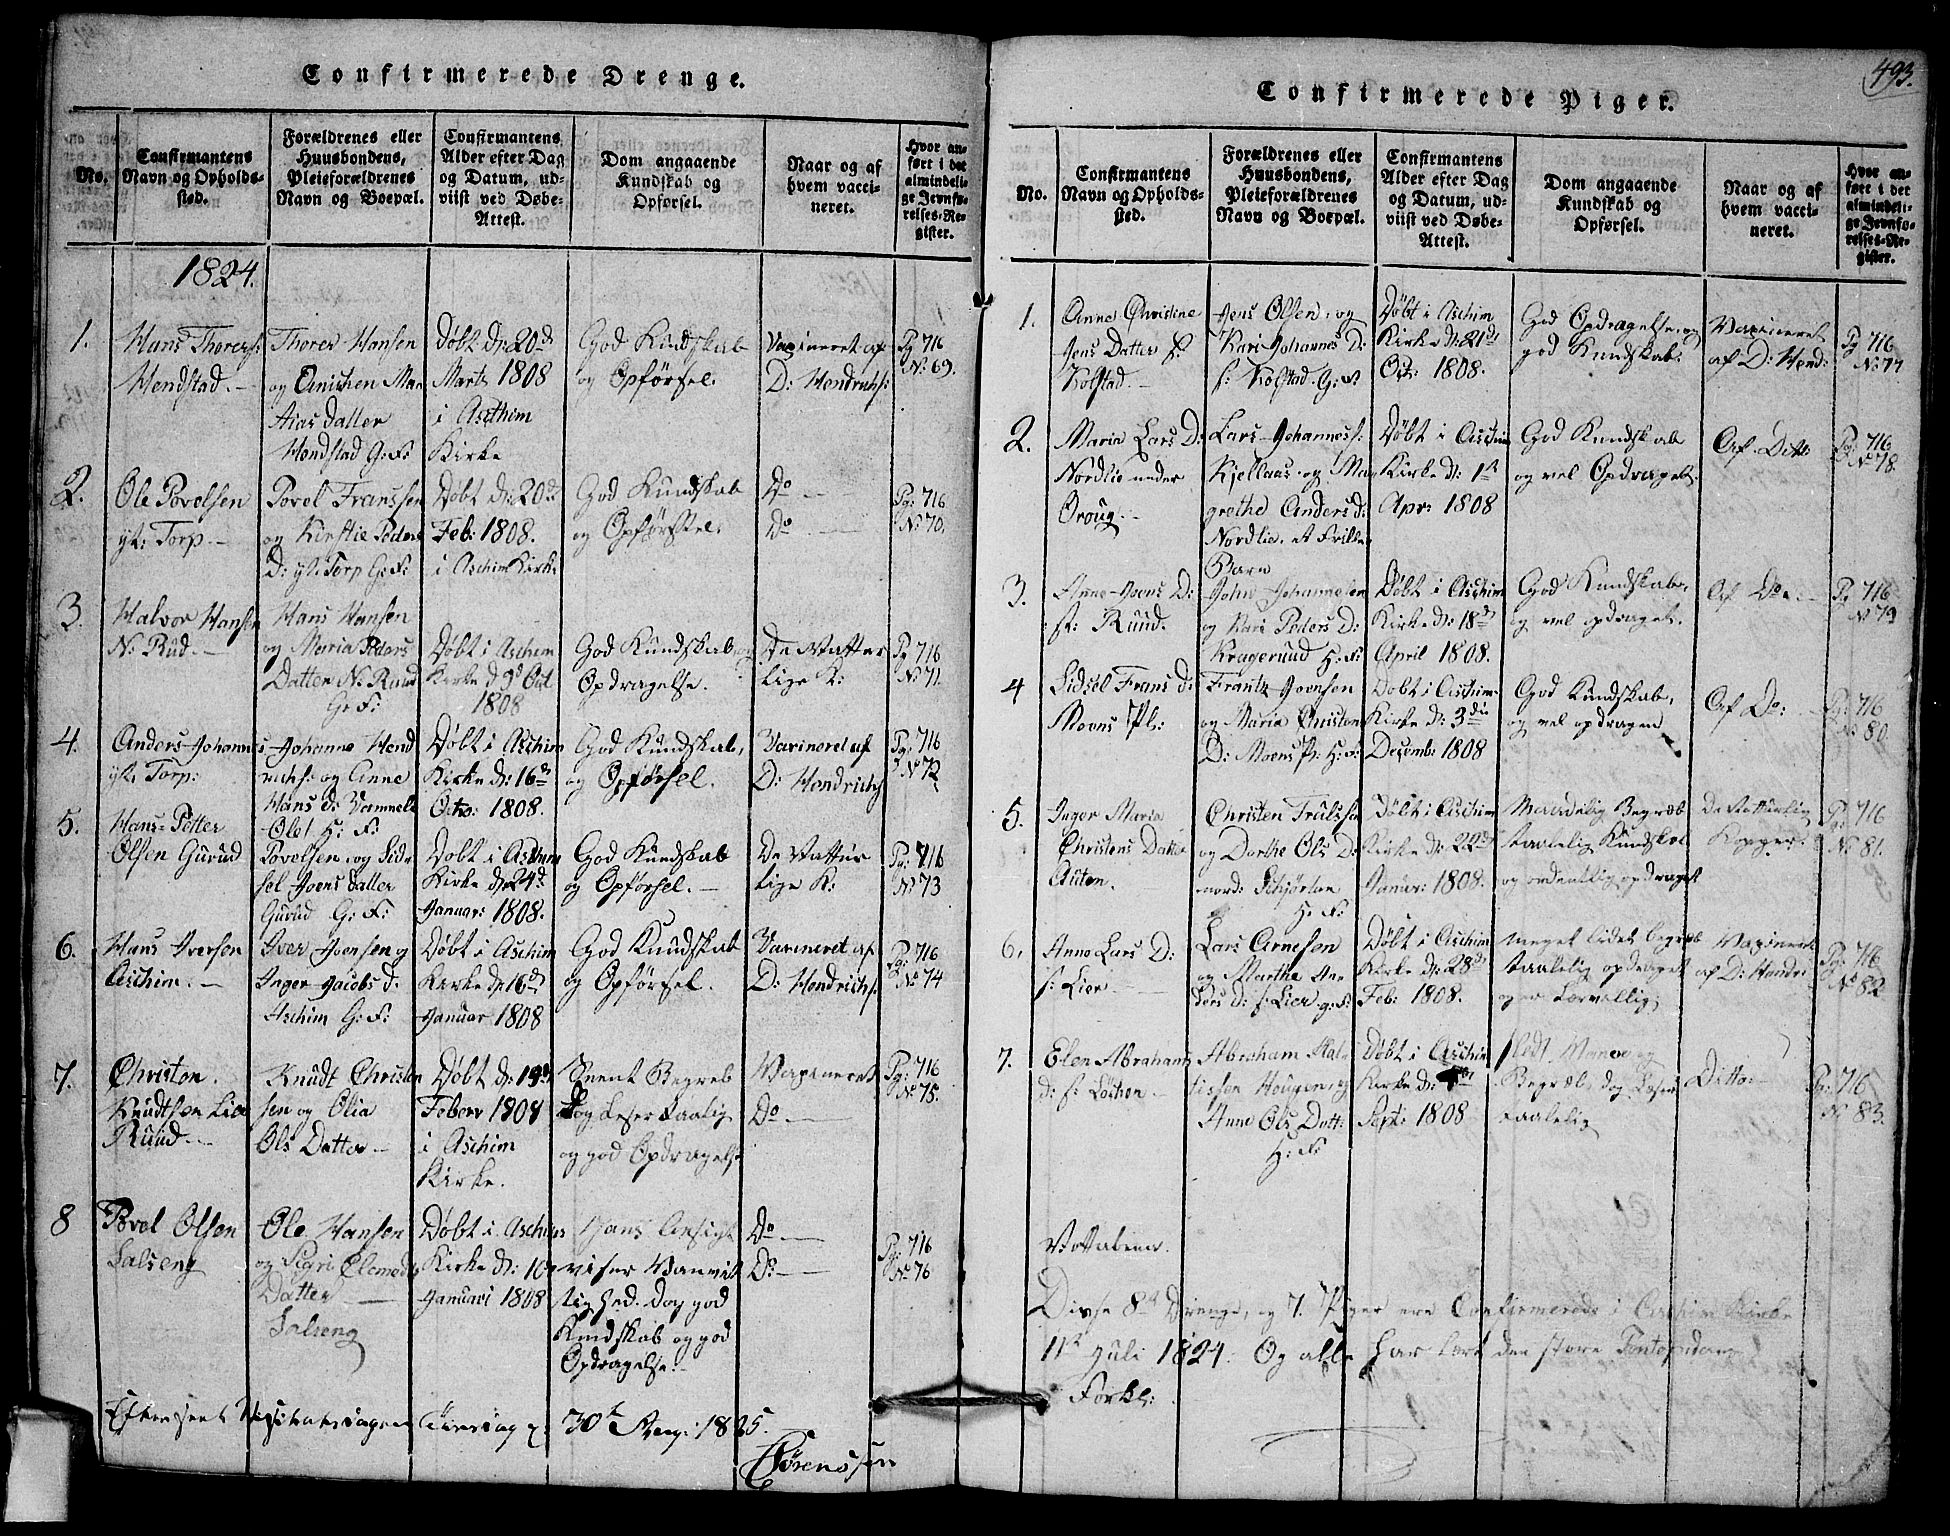 Confirmerede Drenge.
No.
Confirmantens
Navn og Opholds-
sted.
Forældrenes eller
Huusbondens,
Pleieforældrenes
Navn og Boepæl.
Confirmantens
Alder efter Dag
og Datum, ud-
viist ved Døbe-
Attest.
Dom angaaende
Kundskab og
Opførsel.
Naar og af
hvem vacci-
neret.
Hvor an-
ført i det
almindeli-
ge Jevnfø-
relses-Re-
gister.
1824.
1.
Hans Thorers:
Hendstad.
Thorer Hansen
og Anichen Ma
tias datter
Hendstad G: F:
Døbt d: 20d
Marts 1808
i Aschim
Kirke
God Kundskab
og Opførsel.
Vaxineret af
D: Hendrichs:
Pg 716
No: 69.
2.
Ole Povelsen
yt: Torp.
Povel Franssen
og Kirstie Peders
D: yt: Torp G: F:
Døbt d: 20d
Feb: 1808.
i Aschim Kirke
God Kundskab
og Opførsel.
Do
Do
Pg: 716
No 70.
3.
Halvor Hansen
N: Rud.
Hans Hansen
og Maria Peders
Datter N: Ruud
G: F:
Døbt i Aschim
Kirke d 9d Oct
1808
God Kundskab og
Opdragelse.
De Nattur
lige K:
Pg 716
No 71.
4.
Anders Johannes
yt: Torp:
Johanne Hend
richs: og Anne
Hans d: Vammeli
H: F:
Døbt i Aschim
Kirke d: 16d
Octo: 1808.
God Kundskab,
og Opførsel.
Vaxineret af
D: Hendrichs
Pg: 716
No 72
5.
Hans Petter
Olsen Gurud
Ole
Povelsen og Sid
sel Joens datter
Gurud G: F:
Døbt i Aschim
Kirke d: 24d
Januar: 1808.
God Kundskab
og Opførsel.
De Nattur
lige K:
Pg: 716
No 73
6.
Hans Iversen
Aschim.
Iver Joensen og
Inger Jacobs d:
Aschim G: F:
Døbt i Aschim
Kirke d: 16d
Januar 1808
God Kundskab
og Opførsel.
Vaxineret af
D: Hendrichs:
Pg: 716
No 74
7.
Christen
Knudtsen Lie
Ruud.
Knudt Christen
sen og Olia
Ols Datter
Døbt d: 19d
Feberr 1808
i Aschim
Kirke.
Seent Begreb
dog Læser taalig
og god Opdragelse
Vaxineret
Do
Pg: 716
No 75.
8
Povel Olsen
Salseng
Ole Hansen
og Sigri Clemeds
Datter
Salseng
Døbt i Aschim
Kirke d: 10d
Januari 1808
Hans Ansigt
viser Vanvit
tighed. dog god
Kundskab og god
Opdragelse.
Do
Do
Pg: 716
No 76
Efterseet Visitatsdagen Tirsdag d: 30t Aug: 1825.
Sørenssen
493.
Confirmerede Piger.
No.
Confirmantens
Navn og Opholds-
sted.
Forældrenes eller
Huusbondens,
Pleieforældrenes
Navn og Boepæl.
Confirmantens
Alder efter Dag
og Datum, ud-
viist ved Døbe-
Attest.
Dom angaaende
Kundskab og
Opførsel.
Naar og af
hvem vacci-
neret.
Hvor an-
ført i det
almindeli-
ge Jevnfø-
relses-Re-
gister.
1.
Anne Christine
Jens Datter s:
Kolstad.
Jens Olsen og
Kari Johannes D:
s: Kolstad. G: F:
Døbt i Aschim
Kirke d: 21d
Oct: 1808.
God Opdragelse, og
god Kundskab:
Vaxineret
af D: Hend:
Pg 716
No: 77.
2.
Maria Lars D:
Nordlie under
Oroug.
Lars Johanness:
Kjellaas og Mar
grethe Anders d:
Nordlie. et Frille
Barn
Døbt i Aschim
Kirke d: 1st
Apr: 1808
God Kundskab
og vel Opdraget.
Af Ditto
Pg: 716
No 78.
3.
Anne Joens D:
s: Ruud.
John Johannesen
og Kari Peders D:
Kragerud H: F:
Døbt i Aschim
Kirke d: 18d
April 1808.
God Kundskab,
og vel opdraget.
Af Do
Pg 716
No 79
4
Sidsel Frans d:
Moens Pl:
Frantz Joensen
og Maria Christen
D: Moens Pl: H: F:
Døbt i Aschim
Kirke d: 3die
Decemb: 1808
God Kundskab,
og vel opdragen
Af Do:
Pg: 716
No 80.
5.
Inger Maria
Christens Datter
Auten.
Christen Trulssen
og Dorthe Ols D:
nord: Schjørten
H: F:
Døbt i Aschim
Kirke d: 22d
Januar: 1808.
Maadelig Begreb
taalelig Kundskab
og ordentlig opdraget
De Natturlig
Kopper.
Pg: 716
No 81.
6.
Anne Lars D:
s: Lier
Lars Arnesen
og Marthe An
ders d: s: Lier. g: F:
Døbt i Aschim
Kirke d: 28d
Feb: 1808.
Meget lidet begreb
taalelig opdraget
og er Lærvellig
Vaxineret
af D: Hendr:
Pg: 716
No 82
7.
Elen Abrahams
d: s: Løchen
Abraham Hal
Haugen, og
Anne Ols Datt:
H: F:
Døbt i Aschim
Kirke d:
Sept: 1808
slet Minne og
Begreb, dog Læser
taalelig
Ditto
Pg: 716
No 83.
Nottabene.
Disse 8te Drenge, og 7. Piger ere Confirmerede i Aschim Kirke
11te Juli 1824. Og alle har lært den store Pontopidans
Forkl: